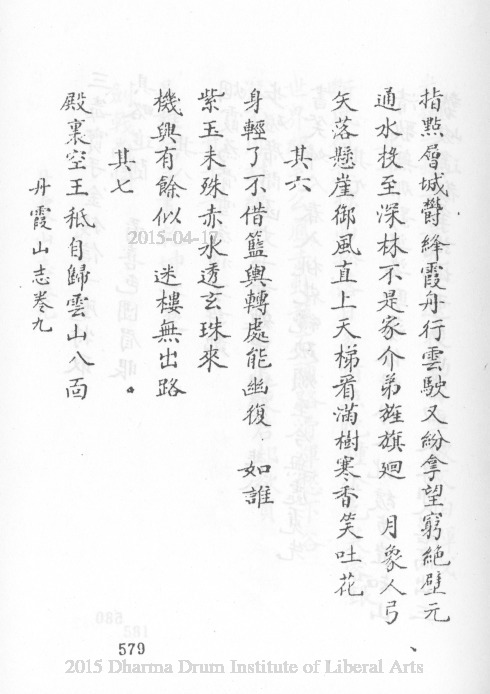 指點層城欝絳霞舟行雲駛又紛拿望窮絕壁元
通水投至深林不是家介弟旌旗廻 月象人弓
矢落懸崖御風直上天梯看滿樹寒香笑吐花
其六
身輕了不借籃輿轉處能幽復 如誰
紫玉未殊赤水透玄珠來
機興有餘似 迷樓無出路
其七
殿裏空王秪自歸雲山八面
丹霞山志卷九
579
2015-04-1
2015 Dharma Drum Institute of Liberal Arts